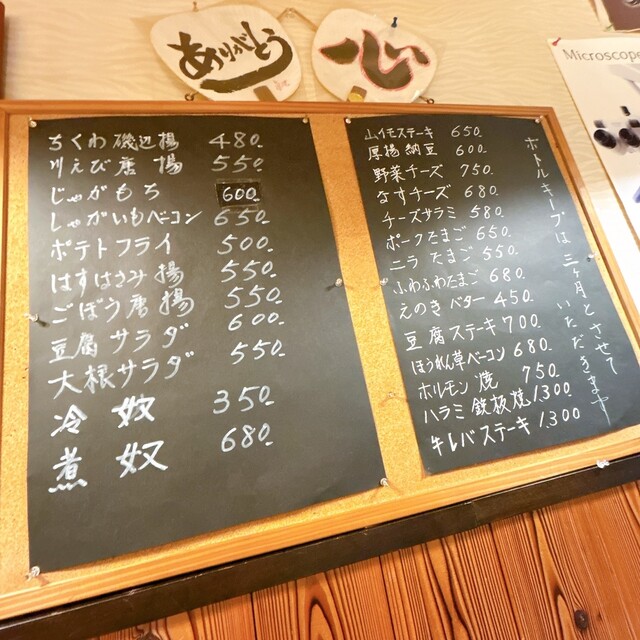 ありがとう
一心
Microscope
ちくわ磯辺揚 480.
川えび唐揚 550.
じゃがもち 600.
じゃがいもベーコン 650.
ポテトフライ 500.
はすはさみ揚 550.
ごぼう唐揚 550.
豆腐サラダ 600.
大根サラダ 550.
冷奴 350.
煮奴 680.
山イモステーキ 650.
厚揚納豆 600.
野菜チーズ 750.
なすチーズ 680.
チーズサラミ 580.
ポークたまご 650.
ニラたまご 550.
ふわふわたまご 680.
えのきバター 450.
豆腐ステーキ 700.
ほうれん草ベーコン 680.
ホルモン焼 750.
ハラミ鉄板焼 1300
牛レバステーキ 1300
ボトルキープは三ヶ月とさせて
いただきます